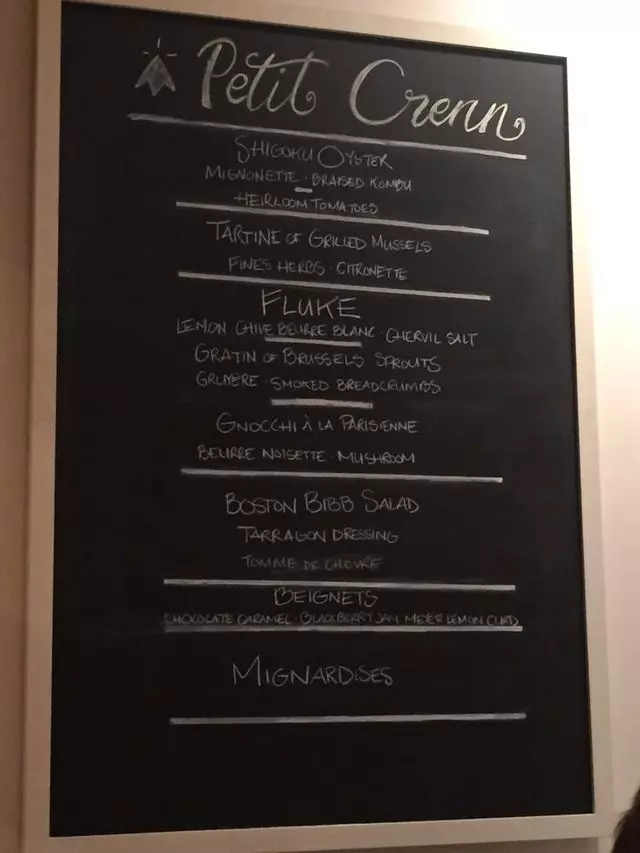 Petit Crenn
SHIGOKU OYSTER
MIGNONETTE · BRAISED KOMBU
HEIRLOOM TOMATOES
TARTINE OF GRILLED MUSSELS
FINES HERBS · CITRONETTE
FLUKE
LEMON CHIVE BEURRE BLANC · CHERVIL SALT
GRATIN OF BRUSSELS SPROUTS
GRUYERE · SMOKED BREADCRUMBS
GNOCCHI À LA PARISIENNE
BEURRE NOISETTE · MUSHROOM
BOSTON BIBB SALAD
TARRAGON DRESSING
TOMME DE CHEVRE
BEIGNETS
CHOCOLATE CARAMEL · BLACKBERRY JAM MEYER LEMON CURD
MIGNARDISES